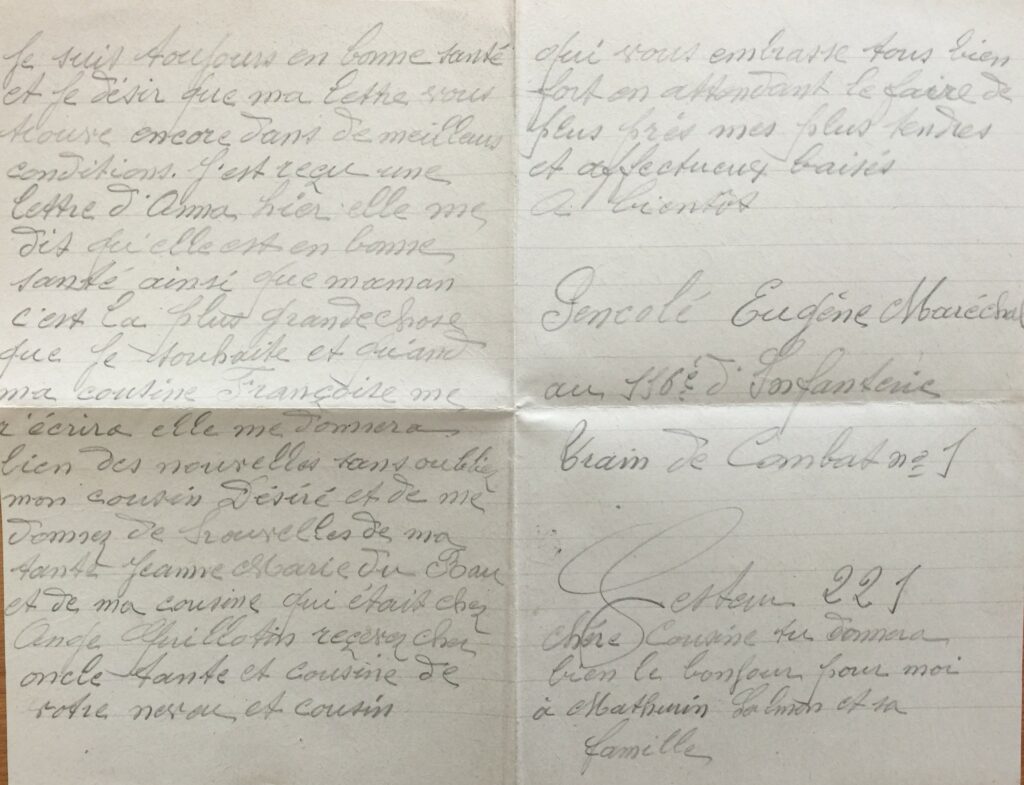 Je suis toujours en bonne santé
et je désir que ma lettre vous
trouve encore dans de meilleurs
conditions. J'est reçu une
lettre d'Anna hier elle me
dit qu'elle est en bonne
santé ainsi que maman
c'est la plus grande chose
que je souhaite et quand
ma cousine Françoise me
r'écrira elle me donnera
bien des nouvelles sans oublier
mon cousin Désiré et de me
donnez de nouvelles de ma
tante Jeanne Marie du
et de ma cousine qui était chez
Ange Guillotin recevez cher
oncle tante et cousine de
votre neveu et cousin
qui vous embrasse tous bien
fort en attendant le faire de
plus près mes plus tendres
et affectueux baisés
A bientôt
Eugène Maréchal
au d'Infanterie
Train de Combat no 1
Secteur 221
chère Cousine tu donnera
bien le bonjour pour moi
à Mathurin Salmon et sa
famille